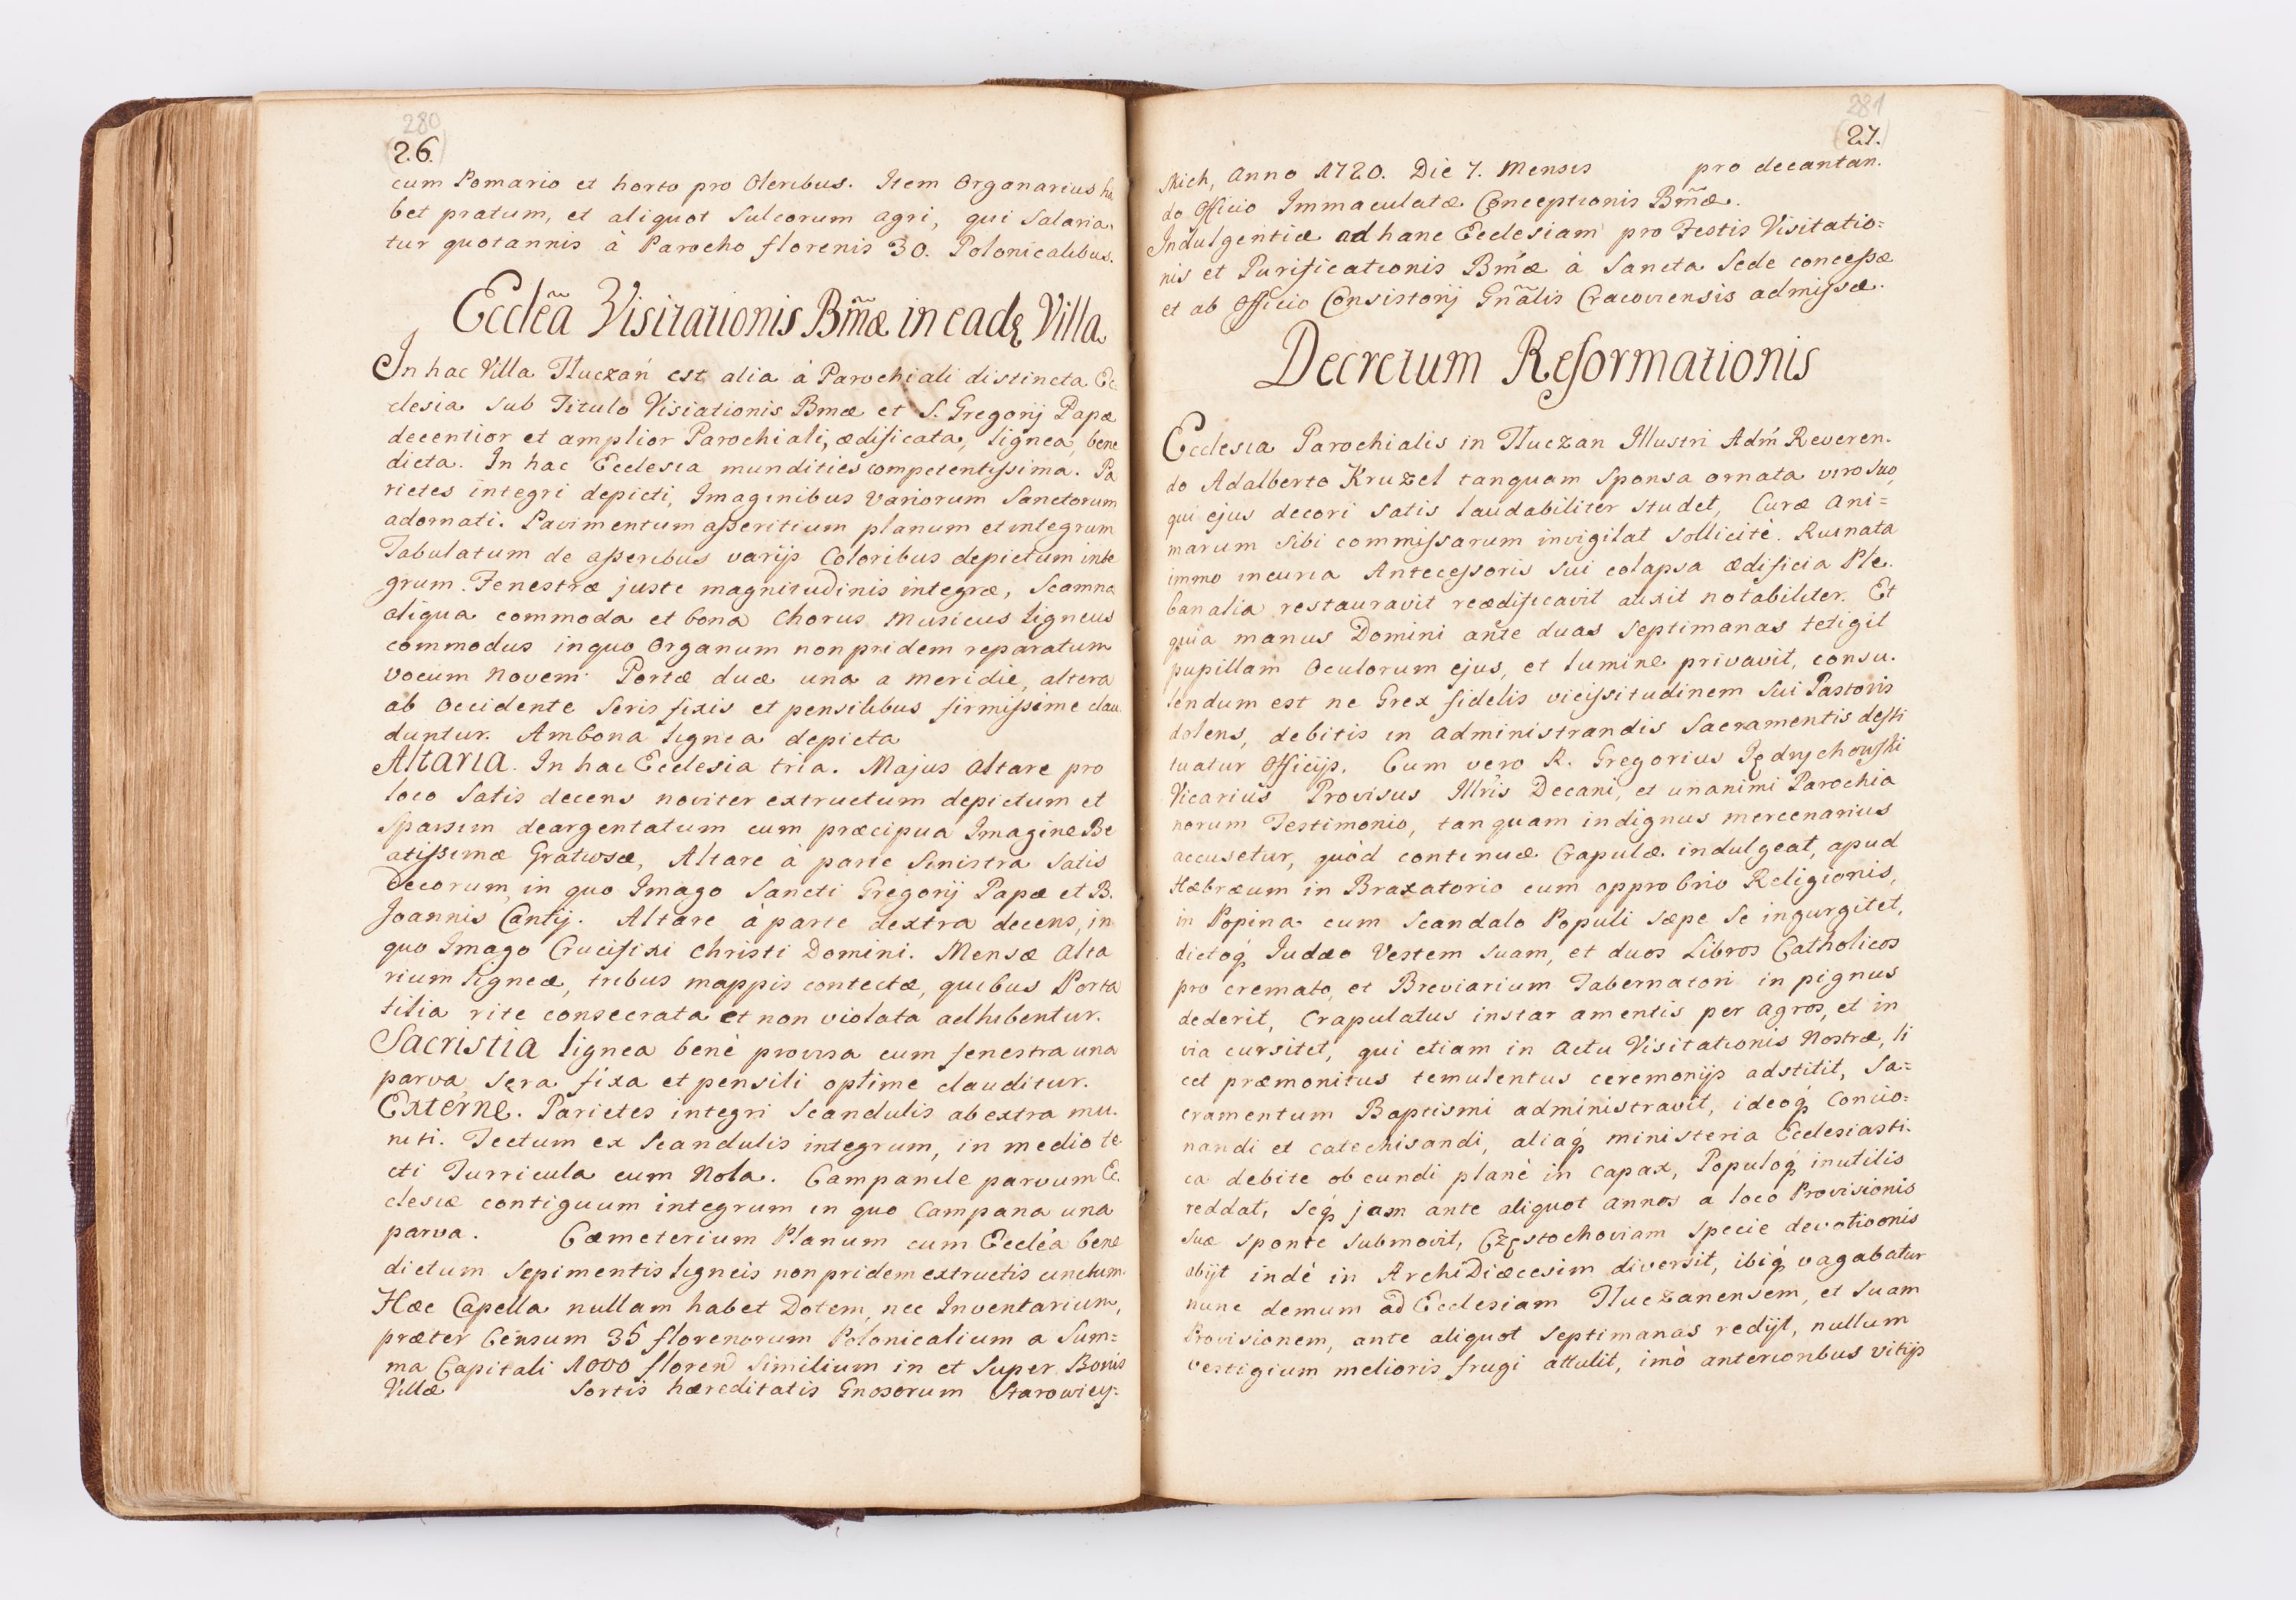 280
26.
cum Pomario et horto pro Oleribus. Item Organarius ha
bet pratum, et aliquot Sulcorum agri, qui Salaria
tur quotannis à Parocho florenis 30. Polonicalibus.
Ecclẽa Visitationis Bm̃æ in eadę Villa
In hac Villa Tłuczań est alia à Parochiali distincta Ec
clesia sub Titulo Visiationis Bmæ et S. Gregorij Papæ
decentior et amplior Parochiali, ædificata, lignea, bene
dicta. In hac Ecclesia mundities competentissima. Pa
rietes integri depicti, Imaginibus variorum Sanctorum
adornati. Pavimentum asseritium planum et integrum
Tabulatum de asseribus varijs Coloribus depictum inte
grum. Fenestræ juste magnitudinis integræ, Scamna
aliqua commoda et bona Chorus Musicus ligneus
commodus in quo Organum non pridem reparatum
vocum Novem. Portæ duæ una a meridie, altera
ab Occidente Seris fixis et pensilibus firmissime clau
duntur. Ambona lignea depicta
Altaria. In hac Ecclesia tria. Majus Altare pro
loco Satis decens noviter extructum depictum et
Sparsim deargentatum cum præcipua Imagine Be
atissimæ Gratiosæ, Altare à parte Sinistra Satis
decorum, in quo Imago Sancti Gregorij Papæ et B.
Joannis Cantij. Altare à parte dextra decens, in
quo Imago Crucifixi Christi Domini. Mensæ Alta
rium ligneæ, tribus mappis contectæ, quibus Porta
tilia rite consecrata et non violata adhibentur.
Sacristia lignea benè provisa cum fenestra una
parva, Sera fixa et pensili optime clauditur.
Externè. Parietes integri Scandulis ab extra mu.
niti. Tectum ex Scandulis integrum, in medio te
cti Turricula cum Nola. Campanile parvum Ec
clesiæ contiguum integrum in quo Campana una
parva. Cæmeterium Planum cum Eccleã bene
dictum Sepimentis ligneis non pridem extructis cinctum.
Hæc Capella nullam habet Dotem, nec Inventarium,
præter Censum 35 florenorum Polonicalium a Sum=
ma Capitali 1000 floren Similium in et Super Bonis
Villæ Sortis hæreditatis Gnosorum Starowiey=
281
27.
skich, Anno 1720. Die 7. Mensis pro decantan.
do Officio Immaculatæ Conceptionis Bm̃æ.
Indulgentiæ ad hanc Ecclesiam pro Festis Visitatio=
nis et Purificationis Bm̃æ à Sancta Sede concessæ
et ab Officio Consistorij Gn̄alis Cracoviensis admissæ.
Decretum Reformationis
Ecclesia Parochialis in Tłuczan Illustri Adm̃ Reveren.
do Adalberto Kruzel tanquam Sponsa ornata viro Suo
qui ejus decori satis laudabiliter studet, Curæ Ani=
marum sibi commissarum invigilat sollicitè. Ruinata
immo incuria Antecessoris sui colapsa ædificia Ple.
banalia restauravit reædificavit auxit notabiliter. Et
quia manus Domini ante duas Septimanas tetigit
pupillam Oculorum ejus, et lumine privavit, consu.
lendum est ne Grex fidelis vicissitudinem Sui Pastoris
dolens, debitis in Administrandis Sacramentis desti
tuatur Officijs. Cum vero R. Gregorius Jędrychowski
Vicarius Provisus Illr̃is Decani, et unanimi Parochia
norum Testimonio, tanquam indignus mercenarius
accusetur, quòd continuæ Crapulæ indulgeat, apud
Hæbræum in Braxatorio cum opprobrio Religionis,
in Popina cum Scandalo Populi sæpe Se ingurgitet,
dictoq́ Judæo Vestem Suam, et duos Libros Catholicos
pro cremato, et Breviarium Tabernatori in pignus
dederit, Crapulatus instar amentis per agros, et in
via cursitet, qui etiam in Actu Visitationis Nostræ, li
cet præmonitus temulentus ceremonijs adstitit, Sa=
cramentum Baptismi administravit, ideoq́ Concio=
nandi et Catechisandi, aliaq́ ministeria Ecclesiasti.
ca debite obeundi planè in capax, Populoq́ inutilis
reddat, Seq́ jam ante aliquot annos a loco Provisionis
Suæ Sponte Submovit, Częstochoviam specie devotioonis
abijt indè in ArchiDiæcesim diversit, ibiq́ vagabatur
nunc demum ad Ecclesiam Tłuczanensem, et Suam
Provisionem, ante aliquot Septimanas redijt, nullum
vestigium melioris frugi attulit, imò anterioribus vitijs